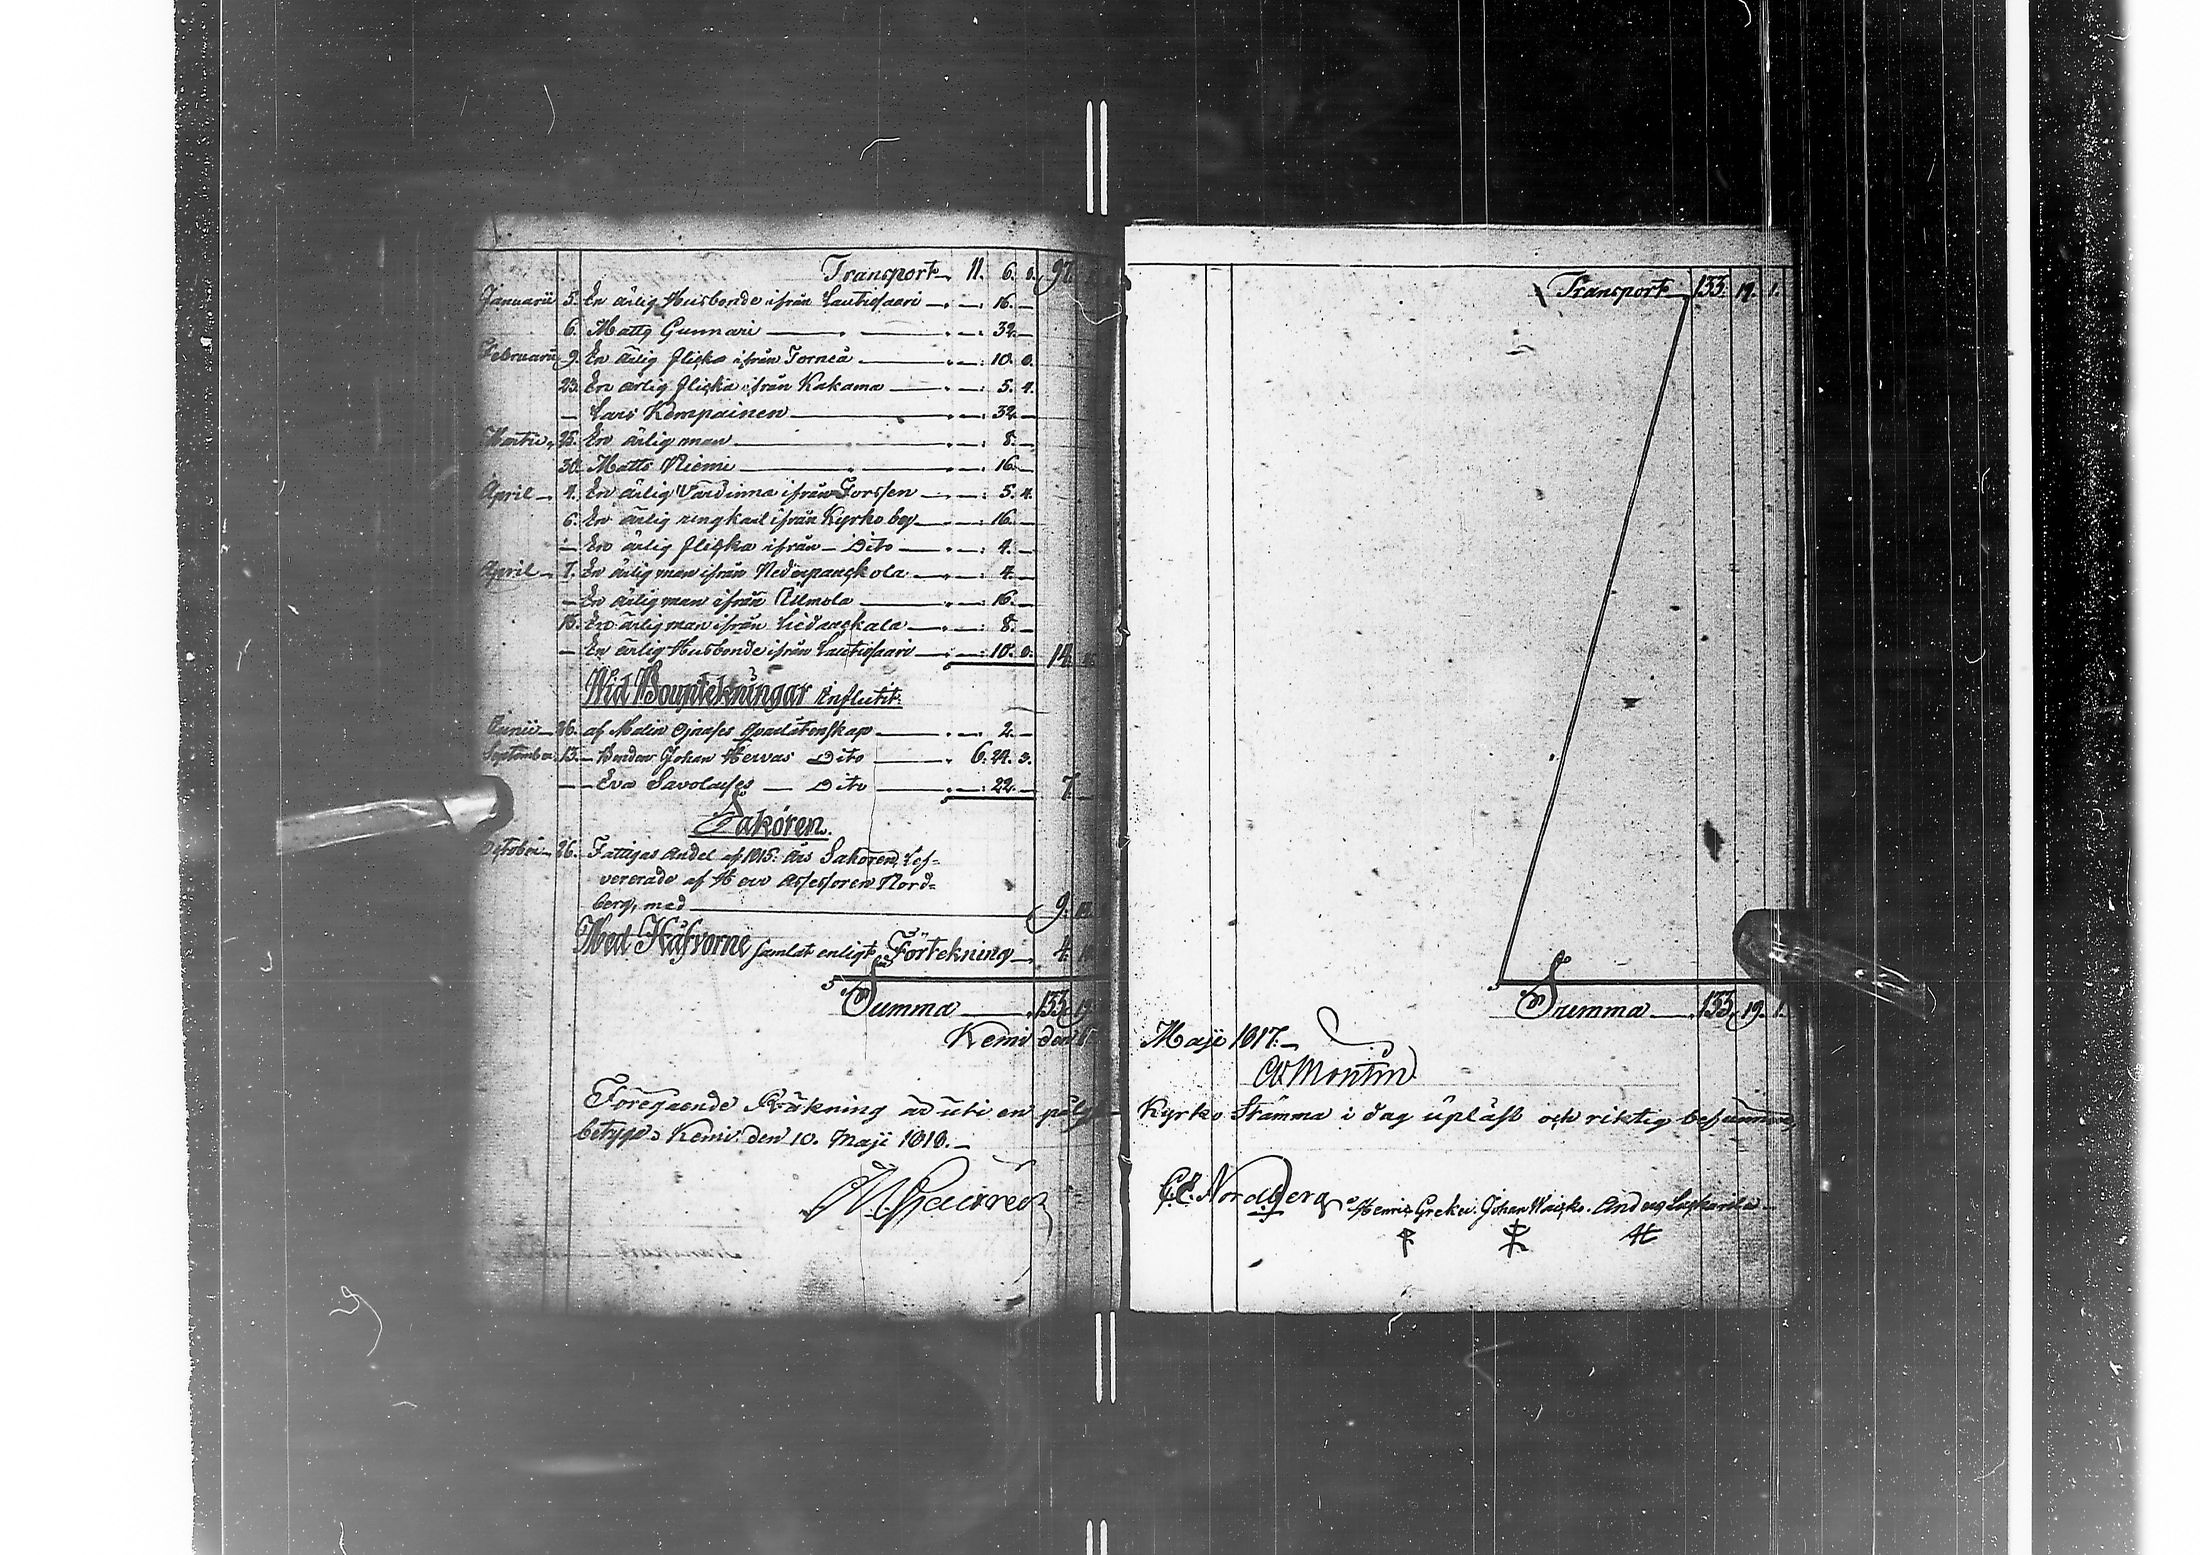 Transport 11. 6. 8. 97.
Januarii 5. En ärlig Husbonde ifrån Lautiosaari — 16. —
6. Matts Gunnari — 32. —
Februarii 9. En ärlig flicka ifrån Torneå — 10. 8.
23. En ärlig flicka ifrån Kakama — 5. 4.
— Lars Kempainen — 32. —
Martii 25. En ärlig man — 8. —
30. Matts Niemi — 16. —
April — 4. En ärlig Värdinna ifrån Torssen — 5. 4.
6. En ärlig ung karl ifrån Kyrko by — 16. —
— En ärlig flicka ifrån — Dito — 4. —
April — 7. En ärlig man ifrån Nederpaackola — 4. —
— En ärlig man ifrån Allmola — 16. —
13. En ärlig man ifrån Liedackala — 8. —
— En ärlig Husbonde ifrån Lautiosaari — 10. 8. 14.
Wid Boupteckningar influtit.
Junii — 26. af Malin Ojnases qvarlåtenskap — 2. —
September 13. — Bonden Johan Hervas Dito — 6. 24. 3.
— — Eva Savolaises — Dito — 22. — 7.
Saköres.
October 26. Fattigas andel af 1815. års Saköres, lef-
vererade af Herr Assessoren Nord-
berg, med — 9.
Med Håfvorne samlat enligt Förtekning — 4.
Summa — 133. 19.
Kemi den
Föregående Räkning är uti en
betygar Kemi den 10. Maji 1818. —
Transport 133. 19. 1.
Summa — 133. 19. 1.
Maji 1817. —
Montin
Kyrko Stämma i dag upläst och riktig befunnen,
Nordberg Henric Greku. Johan Waicko. Anders